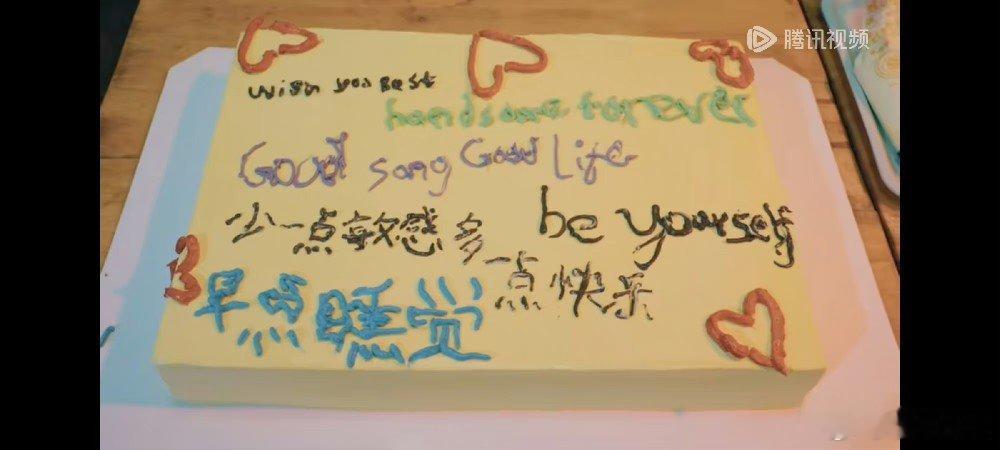 腾讯视频
wish you Best
handsome forever
Good song Good Life
be yourself
少一点敏感多一点快乐
早点睡觉